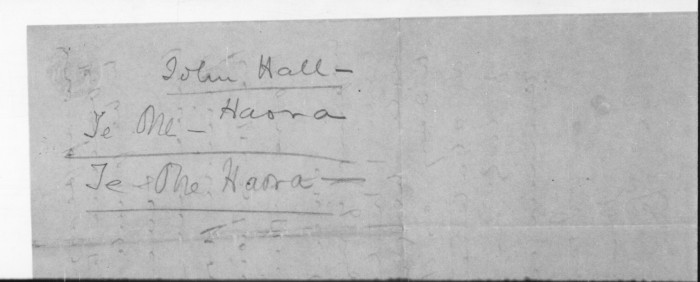 John Hall –
Te One – Haora
Te One Haora –